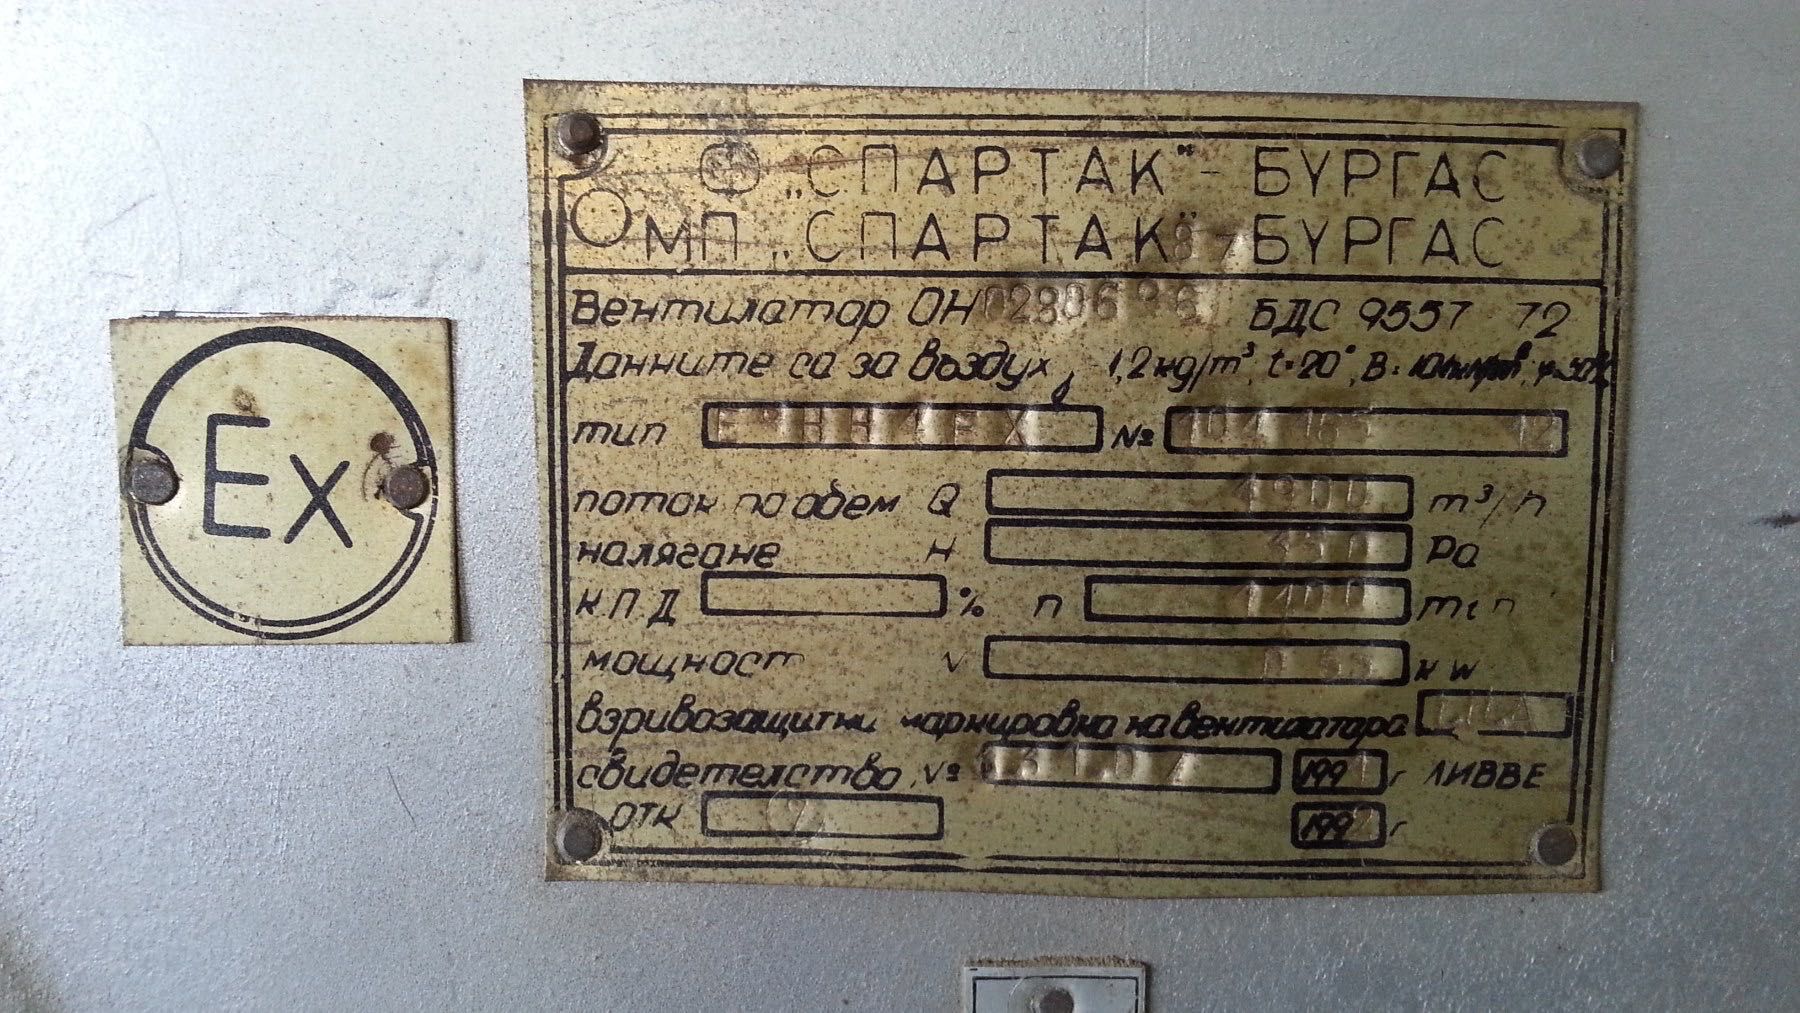 Ex
Ф „СПАРТАК" - БУРГАС
ОМП „СПАРТАК" БУРГАС
87
Вентилатор ОН 0280686 БДС 9557 72
Данните са за въздух 1,2 кg/m³, t=20°, B=
тип №
поток по обем Q 1900 m³/h
налягане H Pa
КПД % n 1400 min
мощност kw
взривозащитни маркировка на вентилатора
свидетелство № 199 г ЛИВВЕ
ОТК 2 1992 г